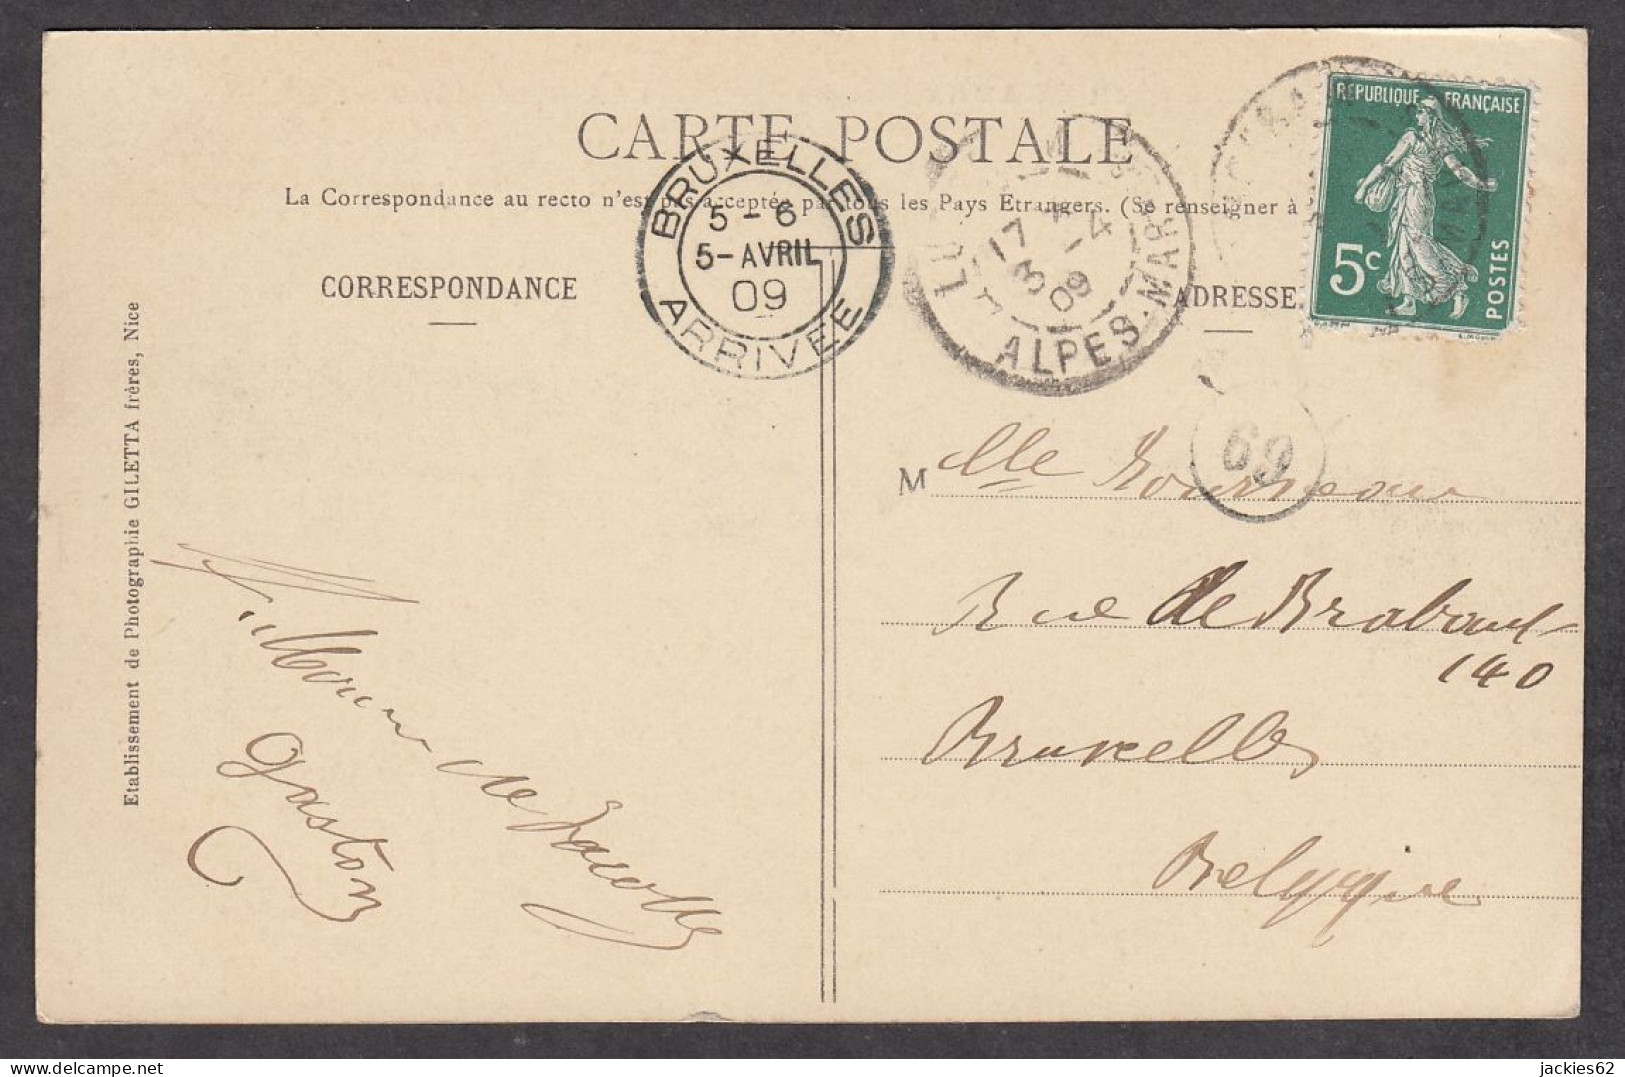 CARTE POSTALE
La Correspondance au recto n'est pas acceptée par tous les Pays Etrangers. (Se renseigner à
CORRESPONDANCE
ADRESSE
BRUXELLES
5-6
5-AVRIL
09
ARRIVEE
17
3-4
09
ALPES-MAR
REPUBLIQUE FRANÇAISE
5c
POSTES
69
Etablissement de Photographie GILETTA frères, Nice
Mlle
Rue de Brabant
140
Bruxelles
Belgique
de
gaston
jackies62